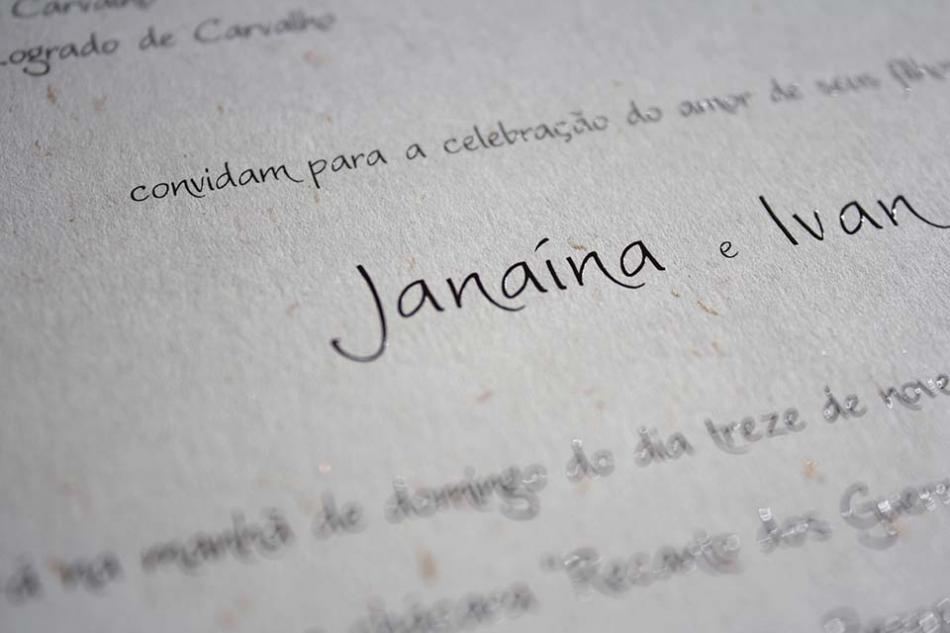 Carvalho
Logrado de Carvalho
convidam para a celebração do amor de seus filhos
Janaína e Ivan
á na manhã de domingo do dia treze de nove
chácara "Recanto dos Guerr